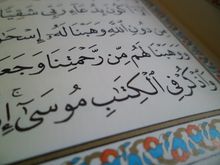 بِدُعَآءِ رَبِّى شَقِيًّا
مِن دُونِ ٱللَّهِ وَهَبْنَا لَهُۥٓ إِسْحَـٰقَ
وَوَهَبْنَا لَهُم مِّن رَّحْمَتِنَا وَجَعَلْ
وَٱذْكُرْ فِى ٱلْكِتَـٰبِ مُوسَىٰٓ ۚ